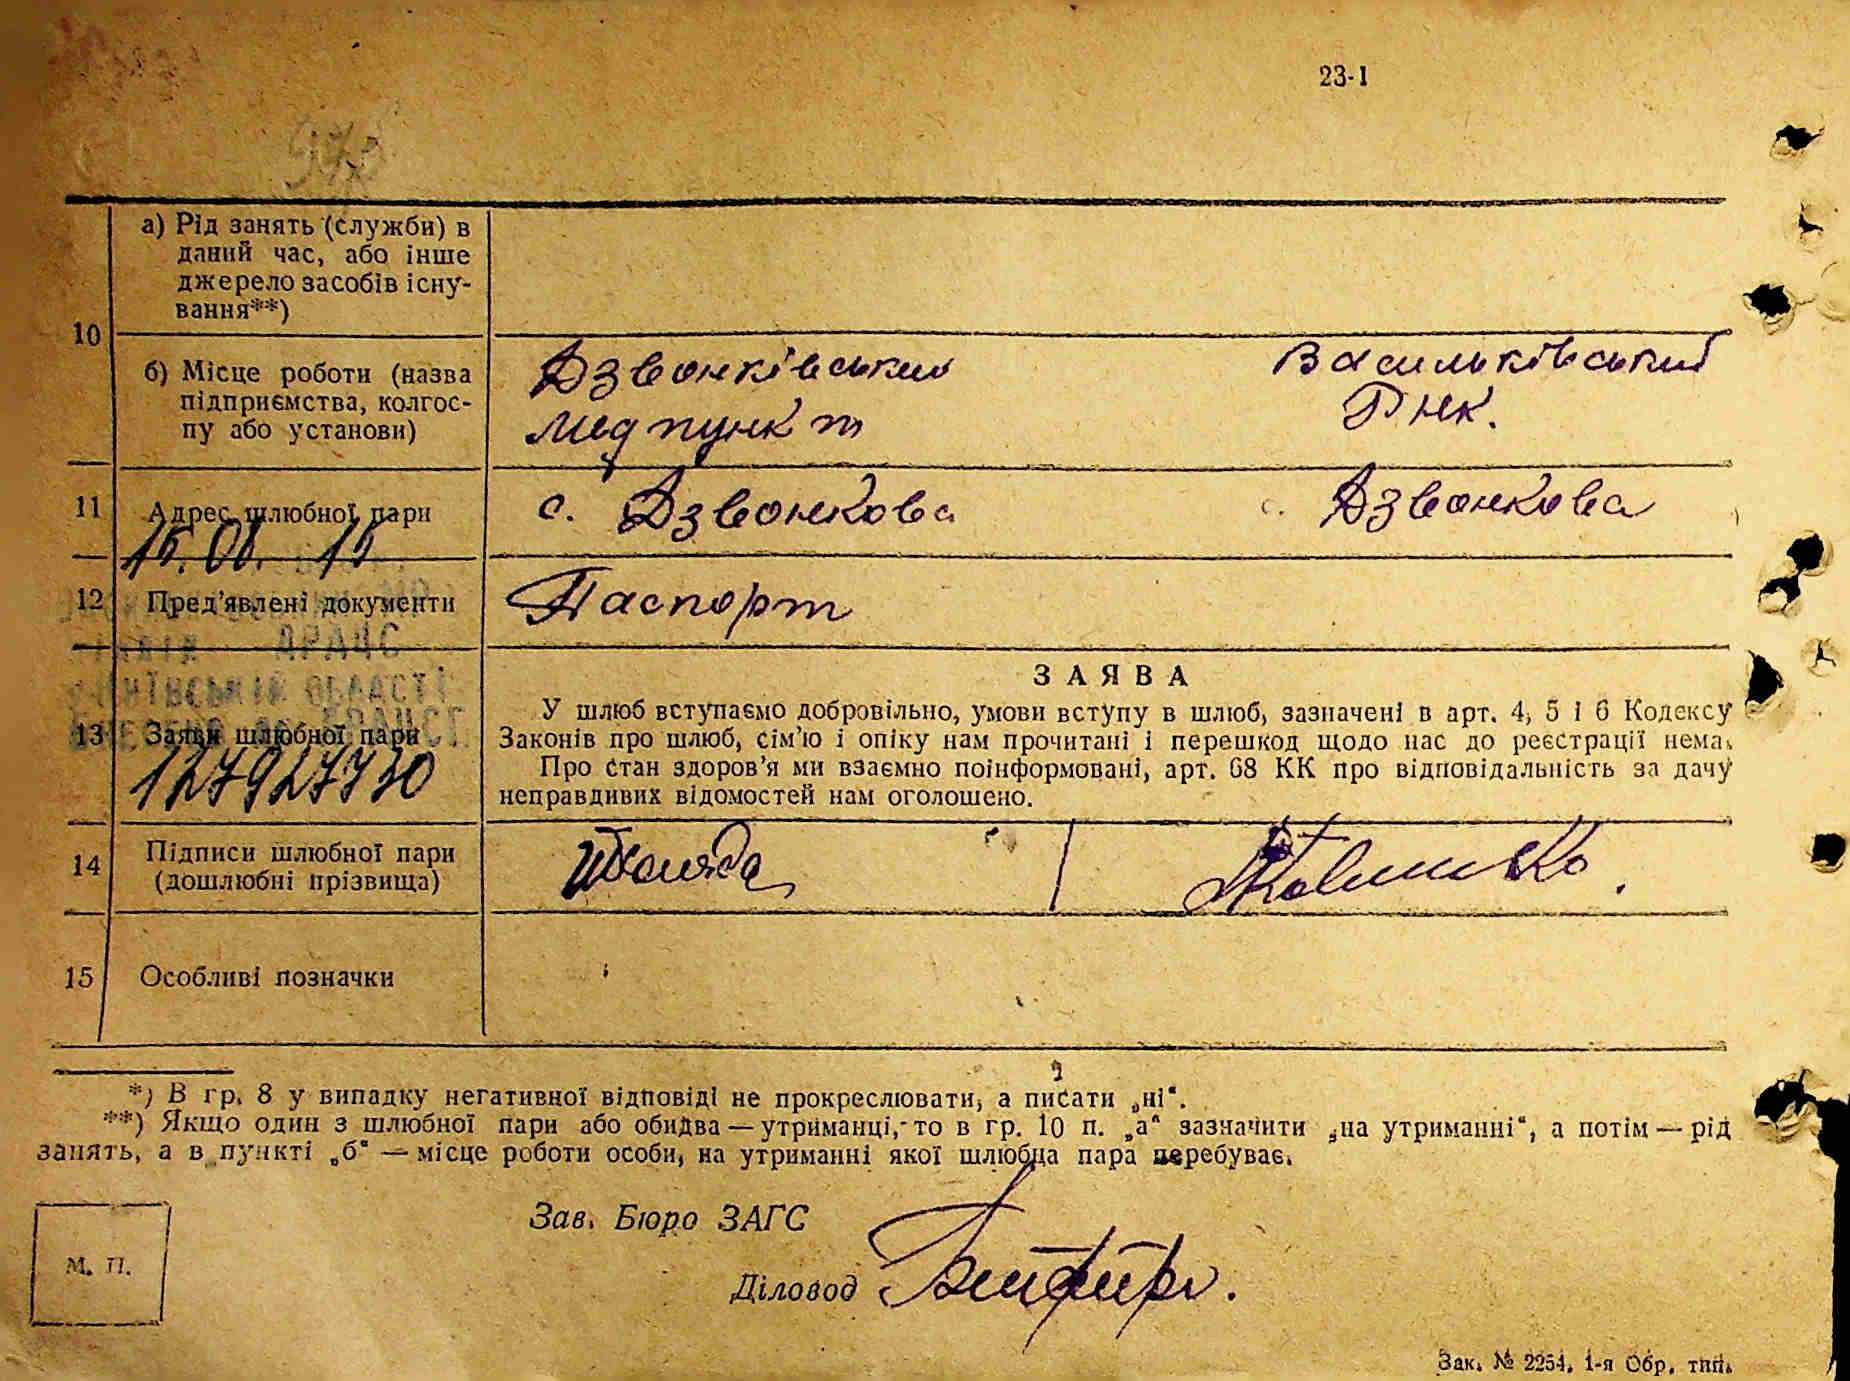 23-1
978
10
а) Рід занять (служби) в
даний час, або інше
джерело засобів існу-
вання**)
б) Місце роботи (назва
підприємства, колгос-
пу або установи)
Дзвонківський
Медпункт
Васильківський
РНК.
11
Адрес шлюбної пари
с. Дзвонкова
с. Дзвонкова
15.08. 15
12
Пред'явлені документи
Паспорт
ДРАЦС
області
13
Заяви шлюбної пари
127927730
ЗАЯВА
У шлюб вступаємо добровільно, умови вступу в шлюб, зазначені в арт. 4, 5 і 6 Кодексу
Законів про шлюб, сім'ю і опіку нам прочитані і перешкод щодо нас до реєстрації нема.
Про стан здоров'я ми взаємно поінформовані, арт. 68 КК про відповідальність за дачу
неправдивих відомостей нам оголошено.
14
Підписи шлюбної пари
(дошлюбні прізвища)
15
Особливі позначки
*) В гр. 8 у випадку негативної відповіді не прокреслювати, а писати „ні“.
**) Якщо один з шлюбної пари або обидва — утриманці, то в гр. 10 п. „а“ зазначити „на утриманні“, а потім — рід
занять, а в пункті „б“ — місце роботи особи, на утриманні якої шлюбна пара перебуває.
Зав. Бюро ЗАГС
Діловод
М. П.
Зак. № 2254. 1-я Обр. тип.